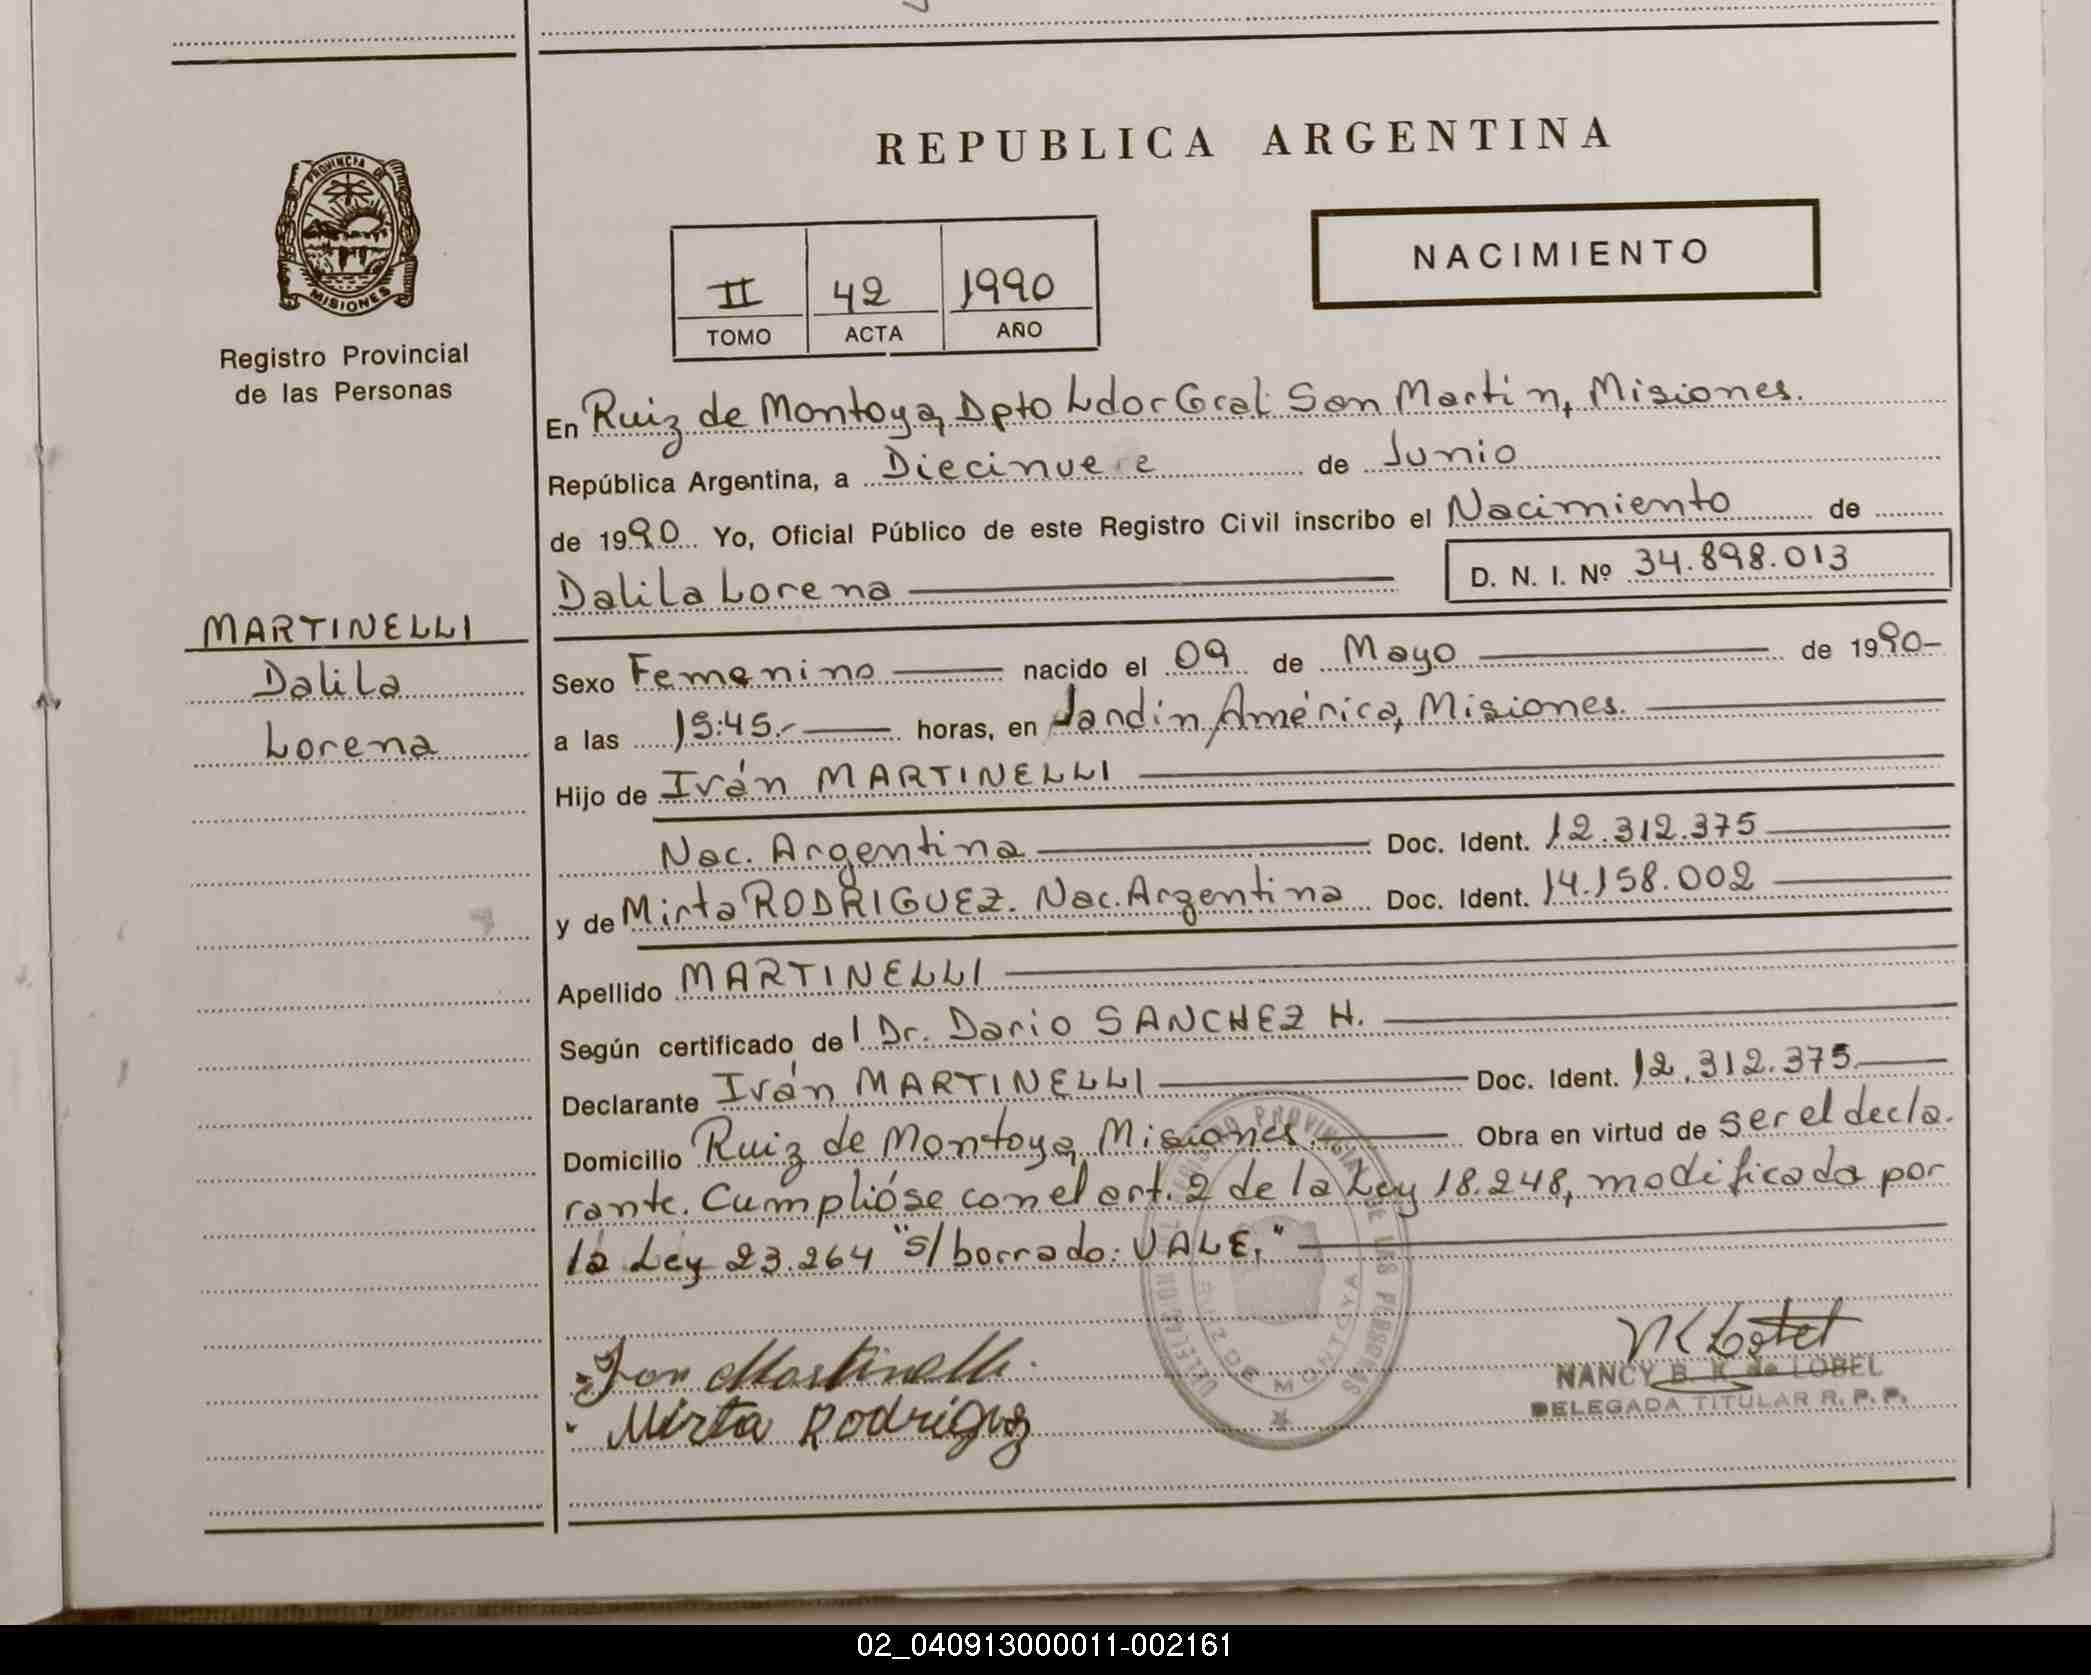 PROVINCIA DE
MISIONES
Registro Provincial
de las Personas
MARTINELLI
Dalila
Lorena
REPUBLICA ARGENTINA
II 42 1990
TOMO ACTA AÑO
NACIMIENTO
En Ruiz de Montoya, Dpto Ldor Gral San Martin, Misiones.
República Argentina, a Diecinueve de Junio
de 1990 Yo, Oficial Público de este Registro Civil inscribo el Nacimiento de
Dalila Lorena D. N. I. Nº 34.898.013
Sexo Femenino nacido el 09 de Mayo de 1990-
a las 15:45.- horas, en Jardín América, Misiones.
Hijo de Iván MARTINELLI
Nac. Argentina Doc. Ident. 12.312.375
y de Mirta RODRIGUEZ. Nac. Argentina Doc. Ident. 14.158.002
Apellido MARTINELLI
Según certificado de l Dr. Dario SANCHEZ H.
Declarante Iván MARTINELLI Doc. Ident. 12.312.375
Domicilio Ruiz de Montoya, Misiones. Obra en virtud de ser el decla.
rante. Cumplióse con el art. 2 de la Ley 18.248, modificada por
la Ley 23.264 "s/borrado: VALE."
REGISTRO PROVINCIAL DE LAS PERSONAS
RUIZ DE MONTOYA
Ivan Martinelli.
Mirta Rodriguez
NANCY B. K. de LOBEL
DELEGADA TITULAR R. P. P.
02_040913000011-002161